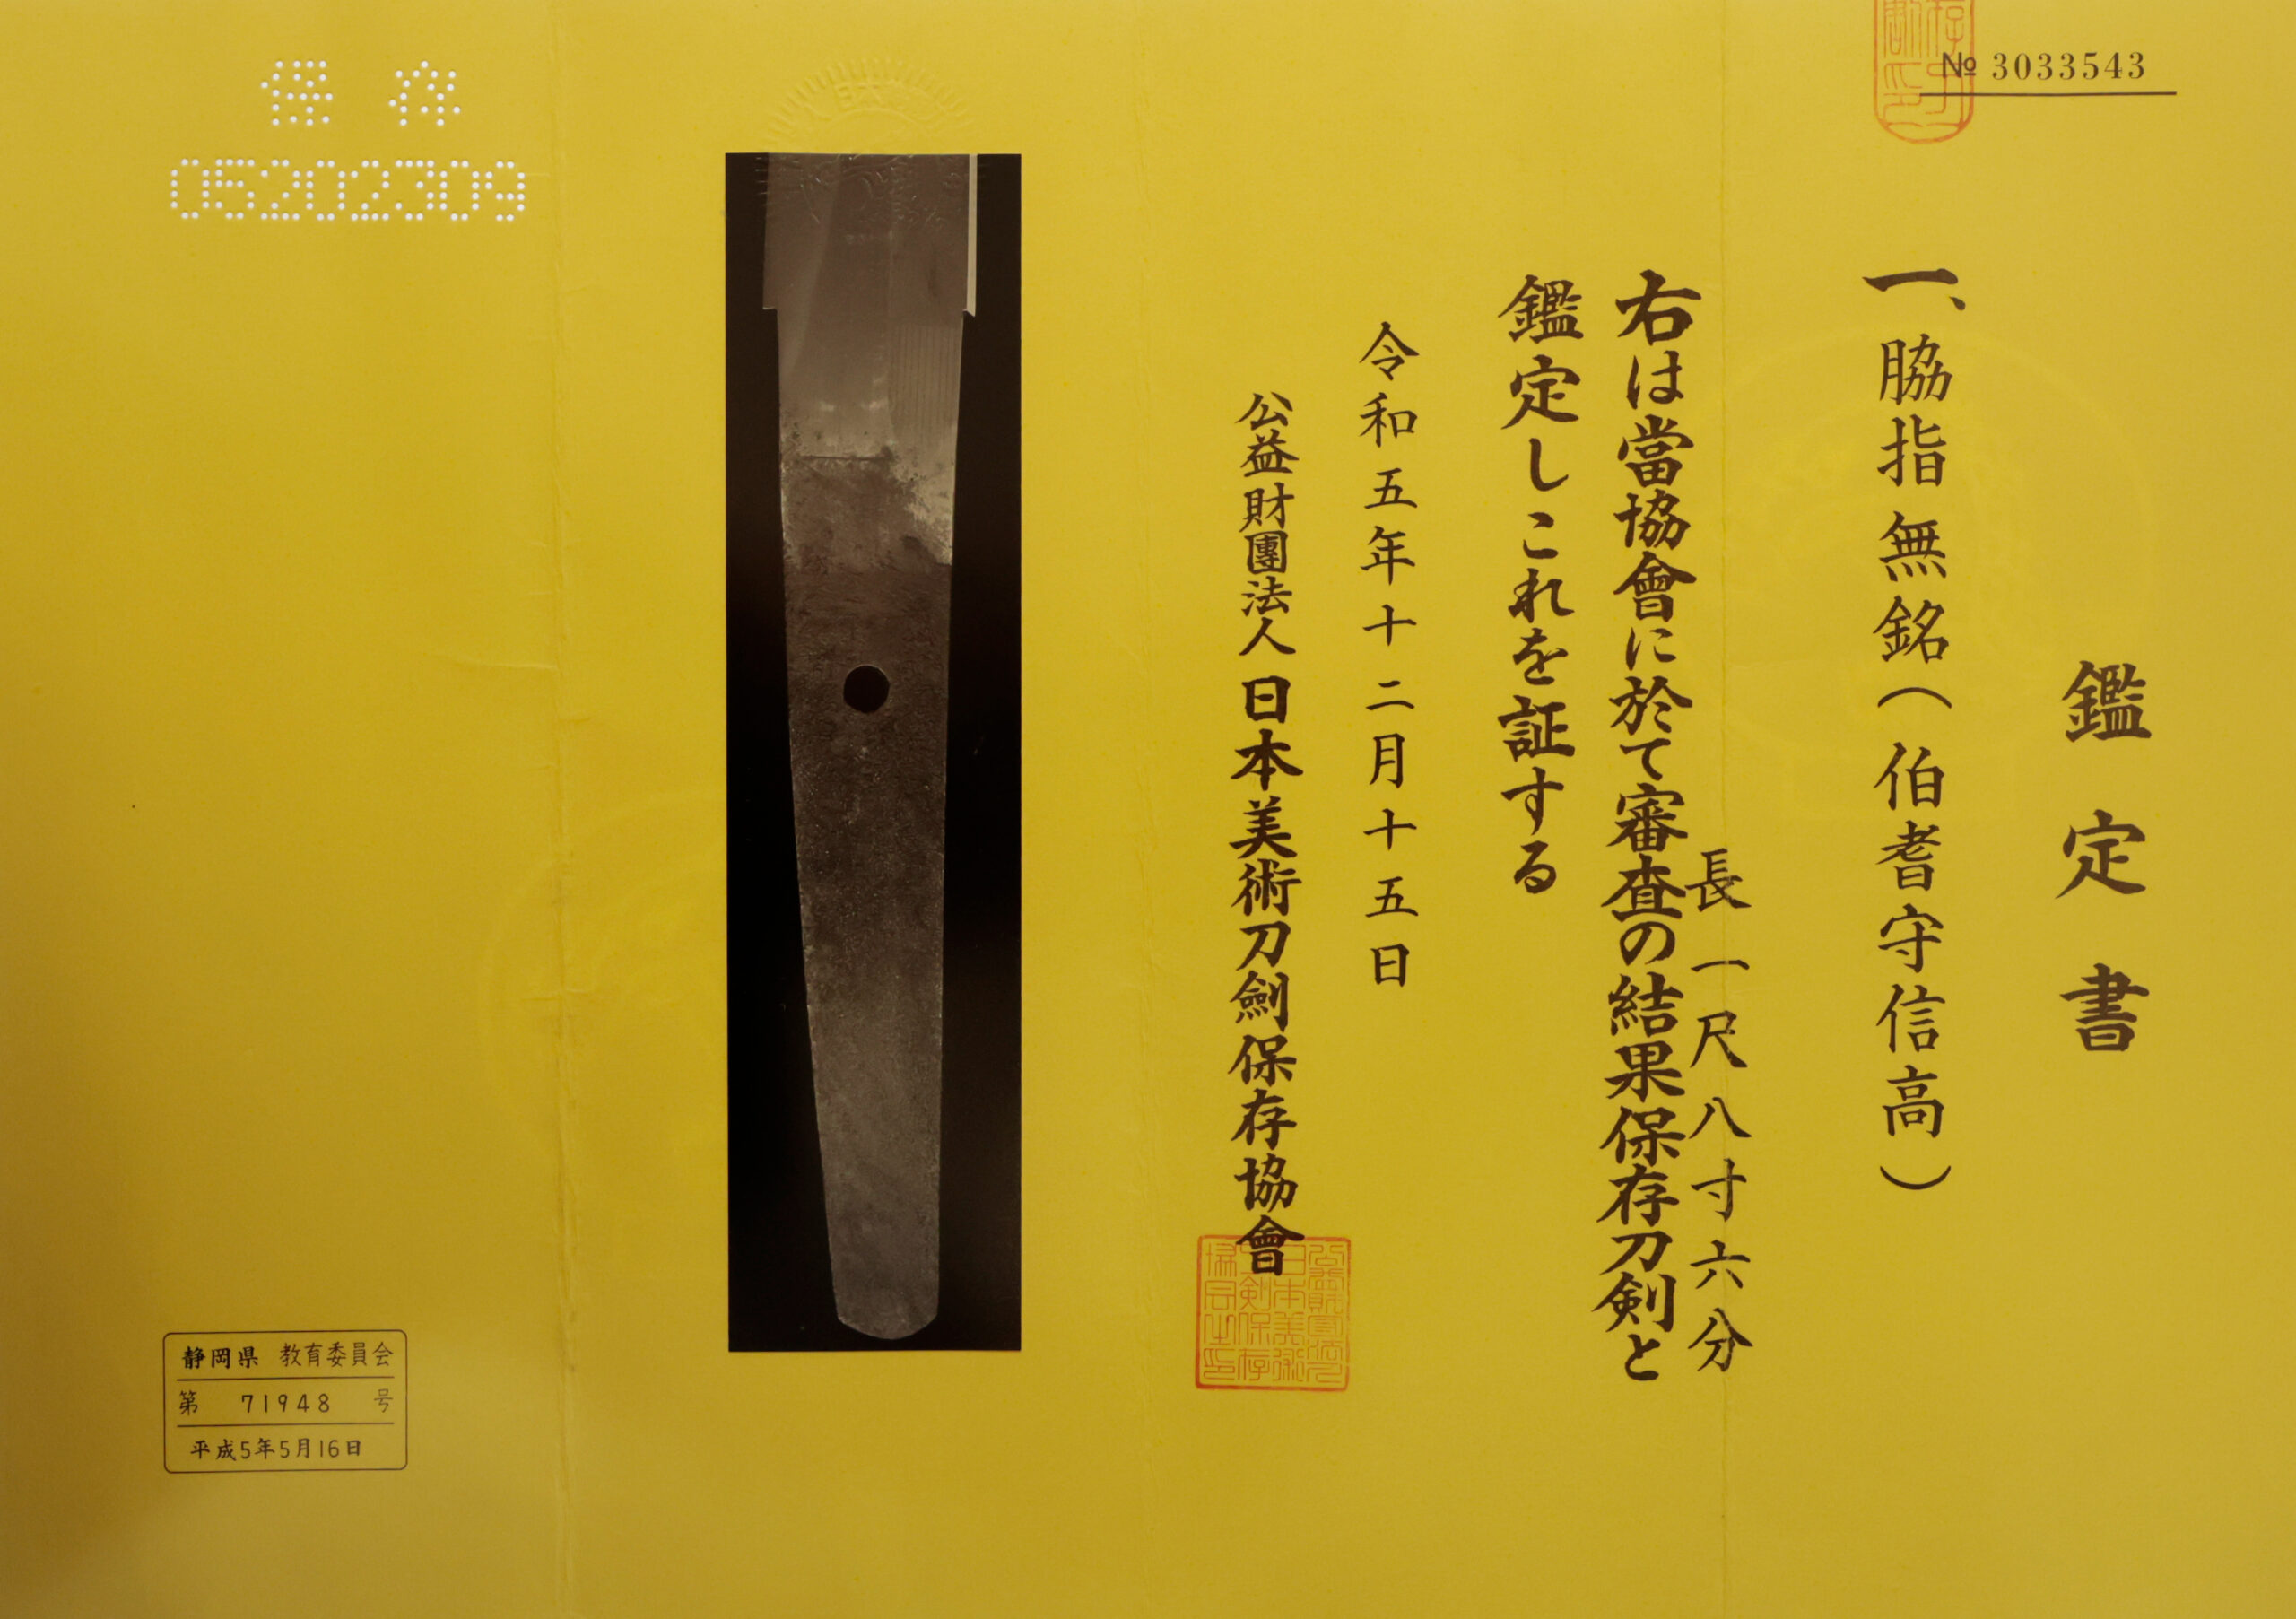 № 3033543
鑑定書
一、脇指無銘(伯耆守信高)
長一尺八寸六分
右は當協會に於て審査の結果保存刀剣と
鑑定しこれを証する
令和五年十二月十五日
公益財團法人日本美術刀劍保存協會
保存
05202309
静岡県 教育委員会
第 71948 号
平成5年5月16日